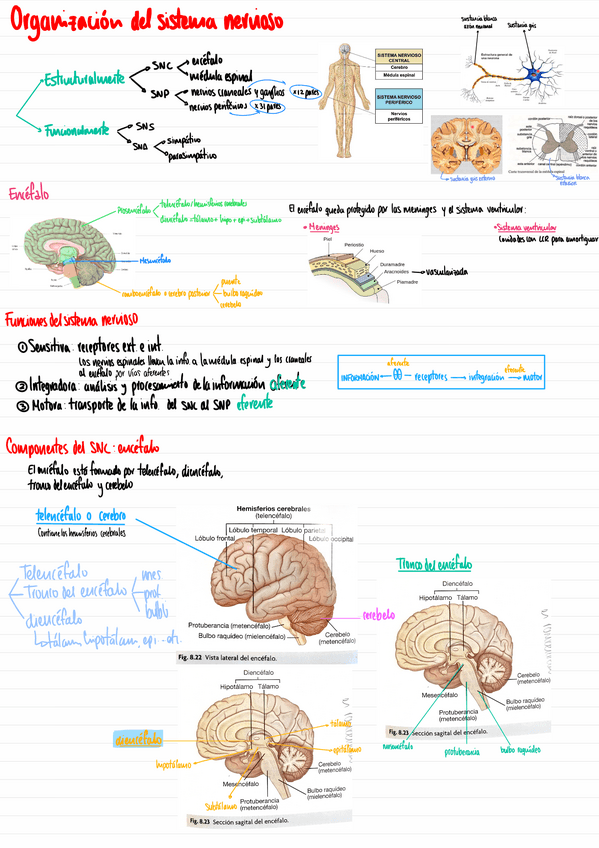 Organización del sistema nervioso
Estructuralmente
SNC
encéfalo
médula espinal
SNP
nervios craneales y ganglios x12 pares
nervios periféricos x31 pares
Funcionalmente
SNS
SNA
simpático
parasimpático
SISTEMA NERVIOSO CENTRAL
Cerebro
Médula espinal
SISTEMA NERVIOSO PERIFÉRICO
Nervios periféricos
sustancia blanca
sustancia gris
sustancia gris externa
sustancia blanca exterior
Encéfalo
Prosencéfalo
telencéfalo/hemisferios cerebrales
diencéfalo = tálamo + hipo + epi + subtálamo
Mesencéfalo
romboencéfalo o cerebro posterior
puente
bulbo raquídeo
cerebelo
El encéfalo queda protegido por las meninges y el sistema ventricular:
• Meninges
Piel
Periostio
Hueso
Duramadre
Aracnoides
vascularizada
Piamadre
• Sistema ventricular
Cavidades con LCR para amortiguar
Funciones del sistema nervioso
① Sensitiva: receptores ext. e int.
los nervios espinales llevan la info. a la médula espinal y los craneales
al encéfalo por vías aferentes
② Integradora: análisis y procesamiento de la información aferente
③ Motora: transporte de la info. del SNC al SNP eferente
aferente eferente
INFORMACIÓN receptores integración motor
Componentes del SNC: encéfalo
El encéfalo está formado por telencéfalo, diencéfalo,
tronco del encéfalo y cerebelo
telencéfalo o cerebro
Contiene los hemisferios cerebrales
Telencéfalo
Tronco del encéfalo
mes
prot
bulbo
diencéfalo
Hemisferios cerebrales
(telencéfalo)
Lóbulo temporal Lóbulo parietal
Lóbulo frontal Lóbulo occipital
cerebelo
Protuberancia (metencéfalo)
Bulbo raquídeo (mielencéfalo)
Cerebelo
(metencéfalo)
Fig. 8.22 Vista lateral del encéfalo.
Tronco del encéfalo
Diencéfalo
Hipotálamo Tálamo
Cerebelo
(metencéfalo)
Mesencéfalo
Bulbo raquídeo
(mielencéfalo)
Protuberancia
(metencéfalo)
Fig. 8.23 Sección sagital del encéfalo.
mesencéfalo
protuberancia
bulbo raquídeo
Diencéfalo
Hipotálamo Tálamo
diencéfalo
tálamo
epitálamo
hipotálamo
Cerebelo
(metencéfalo)
Mesencéfalo
Bulbo raquídeo
(mielencéfalo)
subtálamo
Protuberancia
(metencéfalo)
Fig. 8.23 Sección sagital del encéfalo.